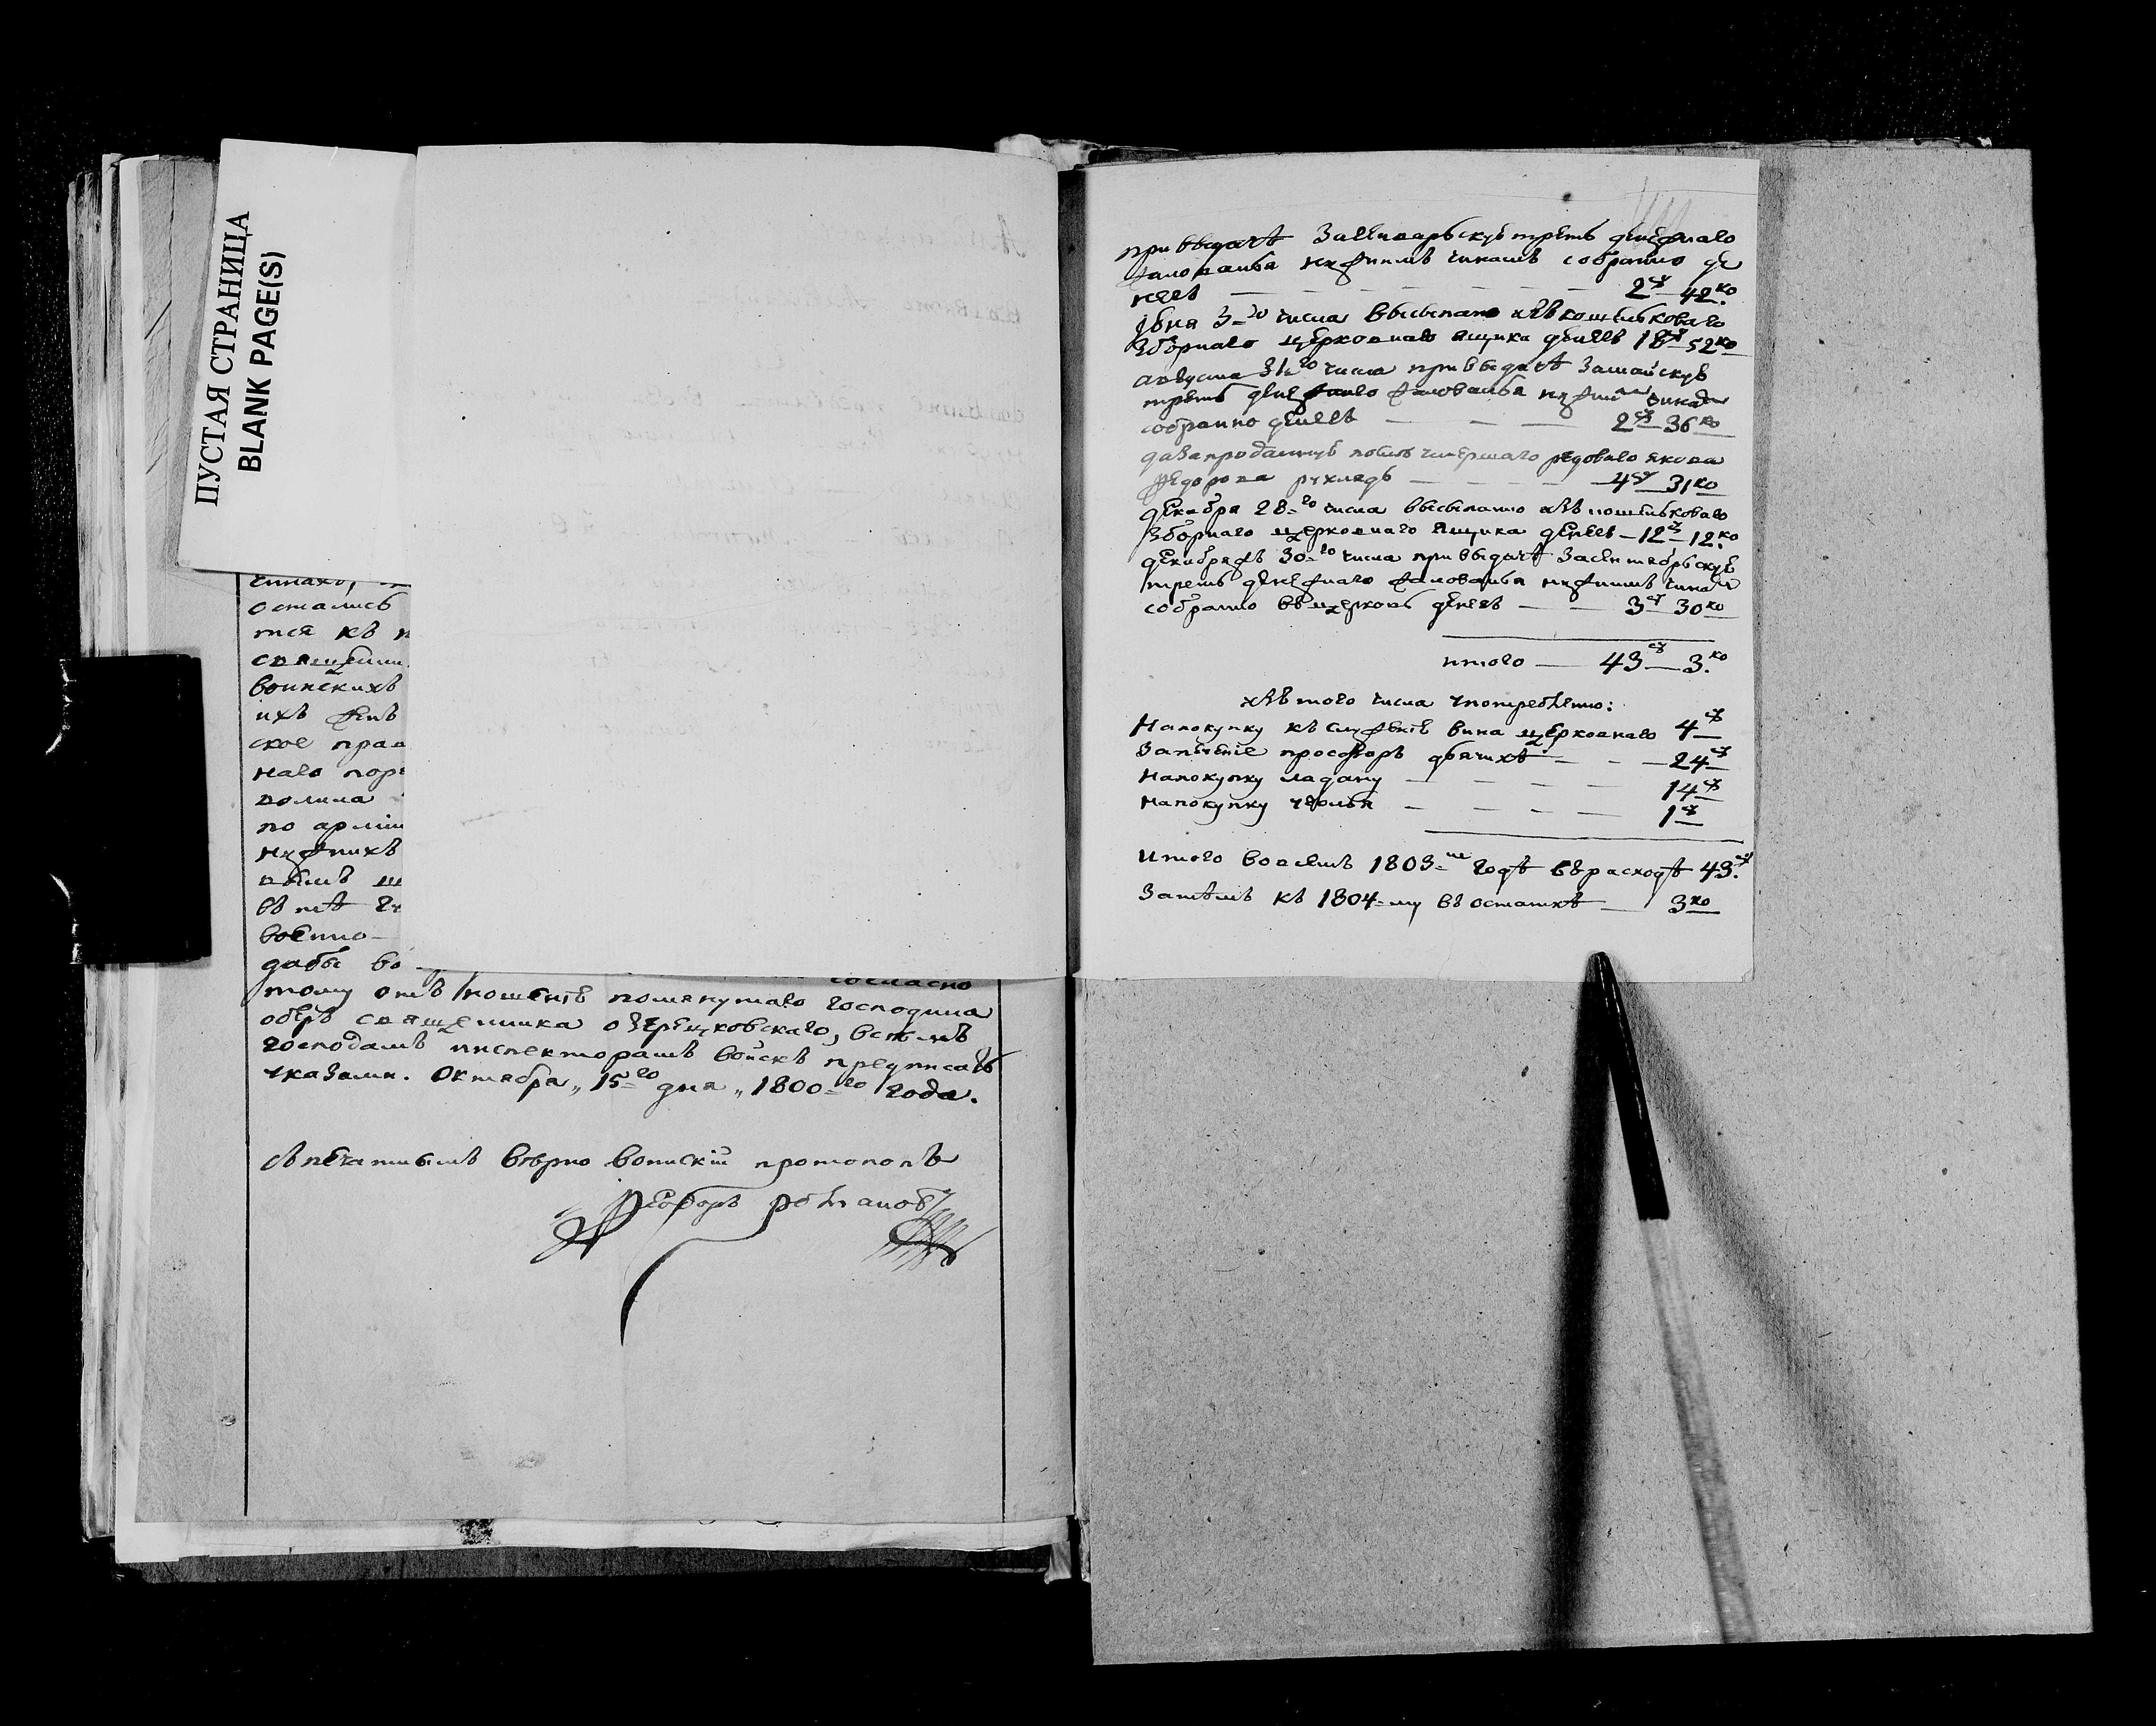 ПУСТАЯ СТРАНИЦА
BLANK PAGE(S)
остались
тся къ
воинскихъ
ихъ
ское
наго
по арміи
въ
военно-
дабы во
согласно
тому отношенію помянутаго господина
оберъ священника озерецковскаго, всѣмъ
господамъ инспекторамъ войскъ предписать
указами. Октября „15-го дня „1800-го года.
съ подлиннымъ вѣрно воинскій протопопъ
Феодоръ
при выдачѣ за генварьскую треть денежнаго
жалованья нижнимъ чинамъ собранно де
негъ — 2 ру 42 ко
Июня 3-го числа высыпано изъ кошельковаго
зборнаго церковнаго ящика денегъ 18 ру 52 ко
августа 31-го числа при выдачѣ за майскую
треть денежнаго жалованья нижнимъ чинамъ
собранно денегъ — 2 ру 36 ко
да за проданную послѣ умершаго редоваго якова
Федорова рухледь — 4 ру 31 ко
декабря 28-го числа высыпанно изъ кошельковаго
зборнаго церковнаго ящика денегъ — 12 ру 12 ко
декабряжъ 30-го числа при выдачѣ за сентябрьскую
треть денежнаго жалованья нижнимъ чинамъ
собранно въ церковь денегъ — 3 ру 30 ко
итого — 43 ру 3 ко
изъ того числа употребленно:
На покупку къ служенію вина церковнаго 4 ру
За печеніе просфоръ — 24 ру
на покупку ладану — 14 ру
на покупку уголья — 1 ру
итого во всемъ 1803-мъ годѣ въ расходѣ 43 ру
Затѣмъ къ 1804-му въ остаткѣ — 3 ко